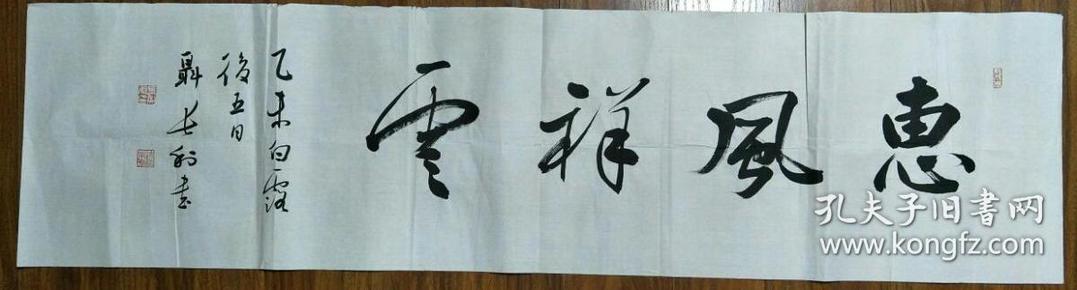 惠風祥雲
乙未白露
後五日
聶長利書
孔夫子旧書网
www.kongfz.com